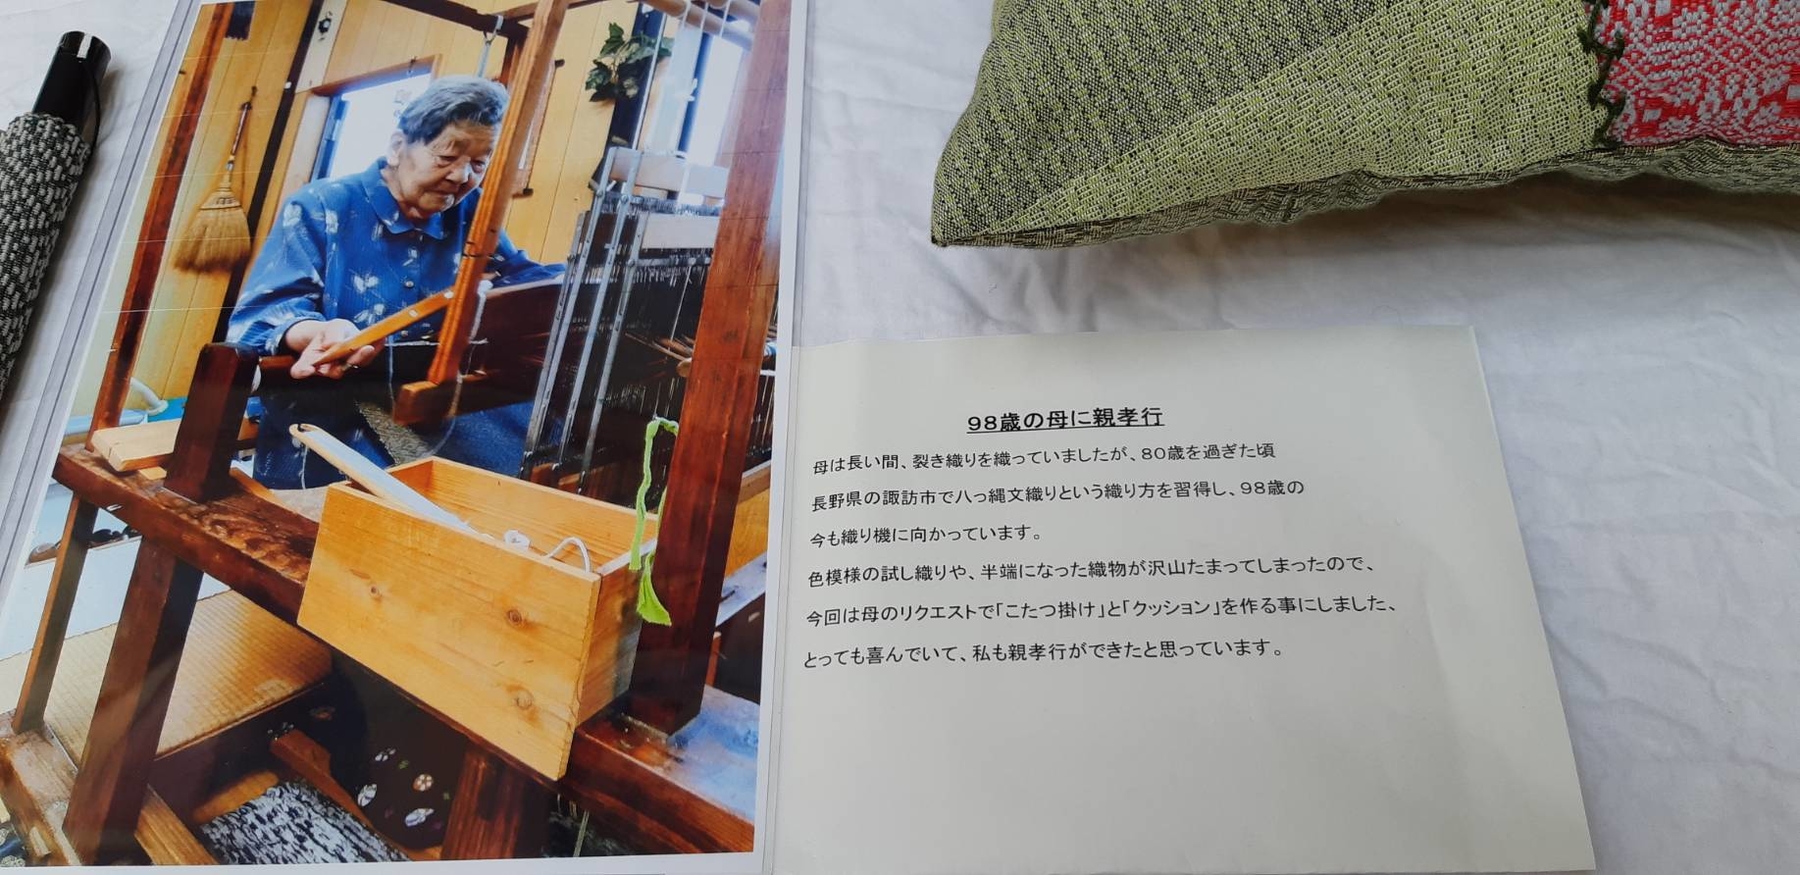 98歳の母に親孝行
母は長い間、裂き織りを織っていましたが、80歳を過ぎた頃
長野県の諏訪市で八っ縄文織りという織り方を習得し、98歳の
今も織り機に向かっています。
色模様の試し織りや、半端になった織物が沢山たまってしまったので、
今回は母のリクエストで「こたつ掛け」と「クッション」を作る事にしました、
とっても喜んでいて、私も親孝行ができたと思っています。